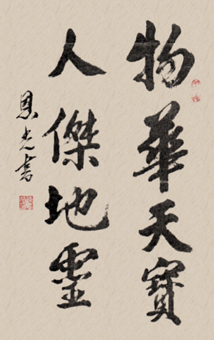 物華天寶
人傑地靈
恩光書